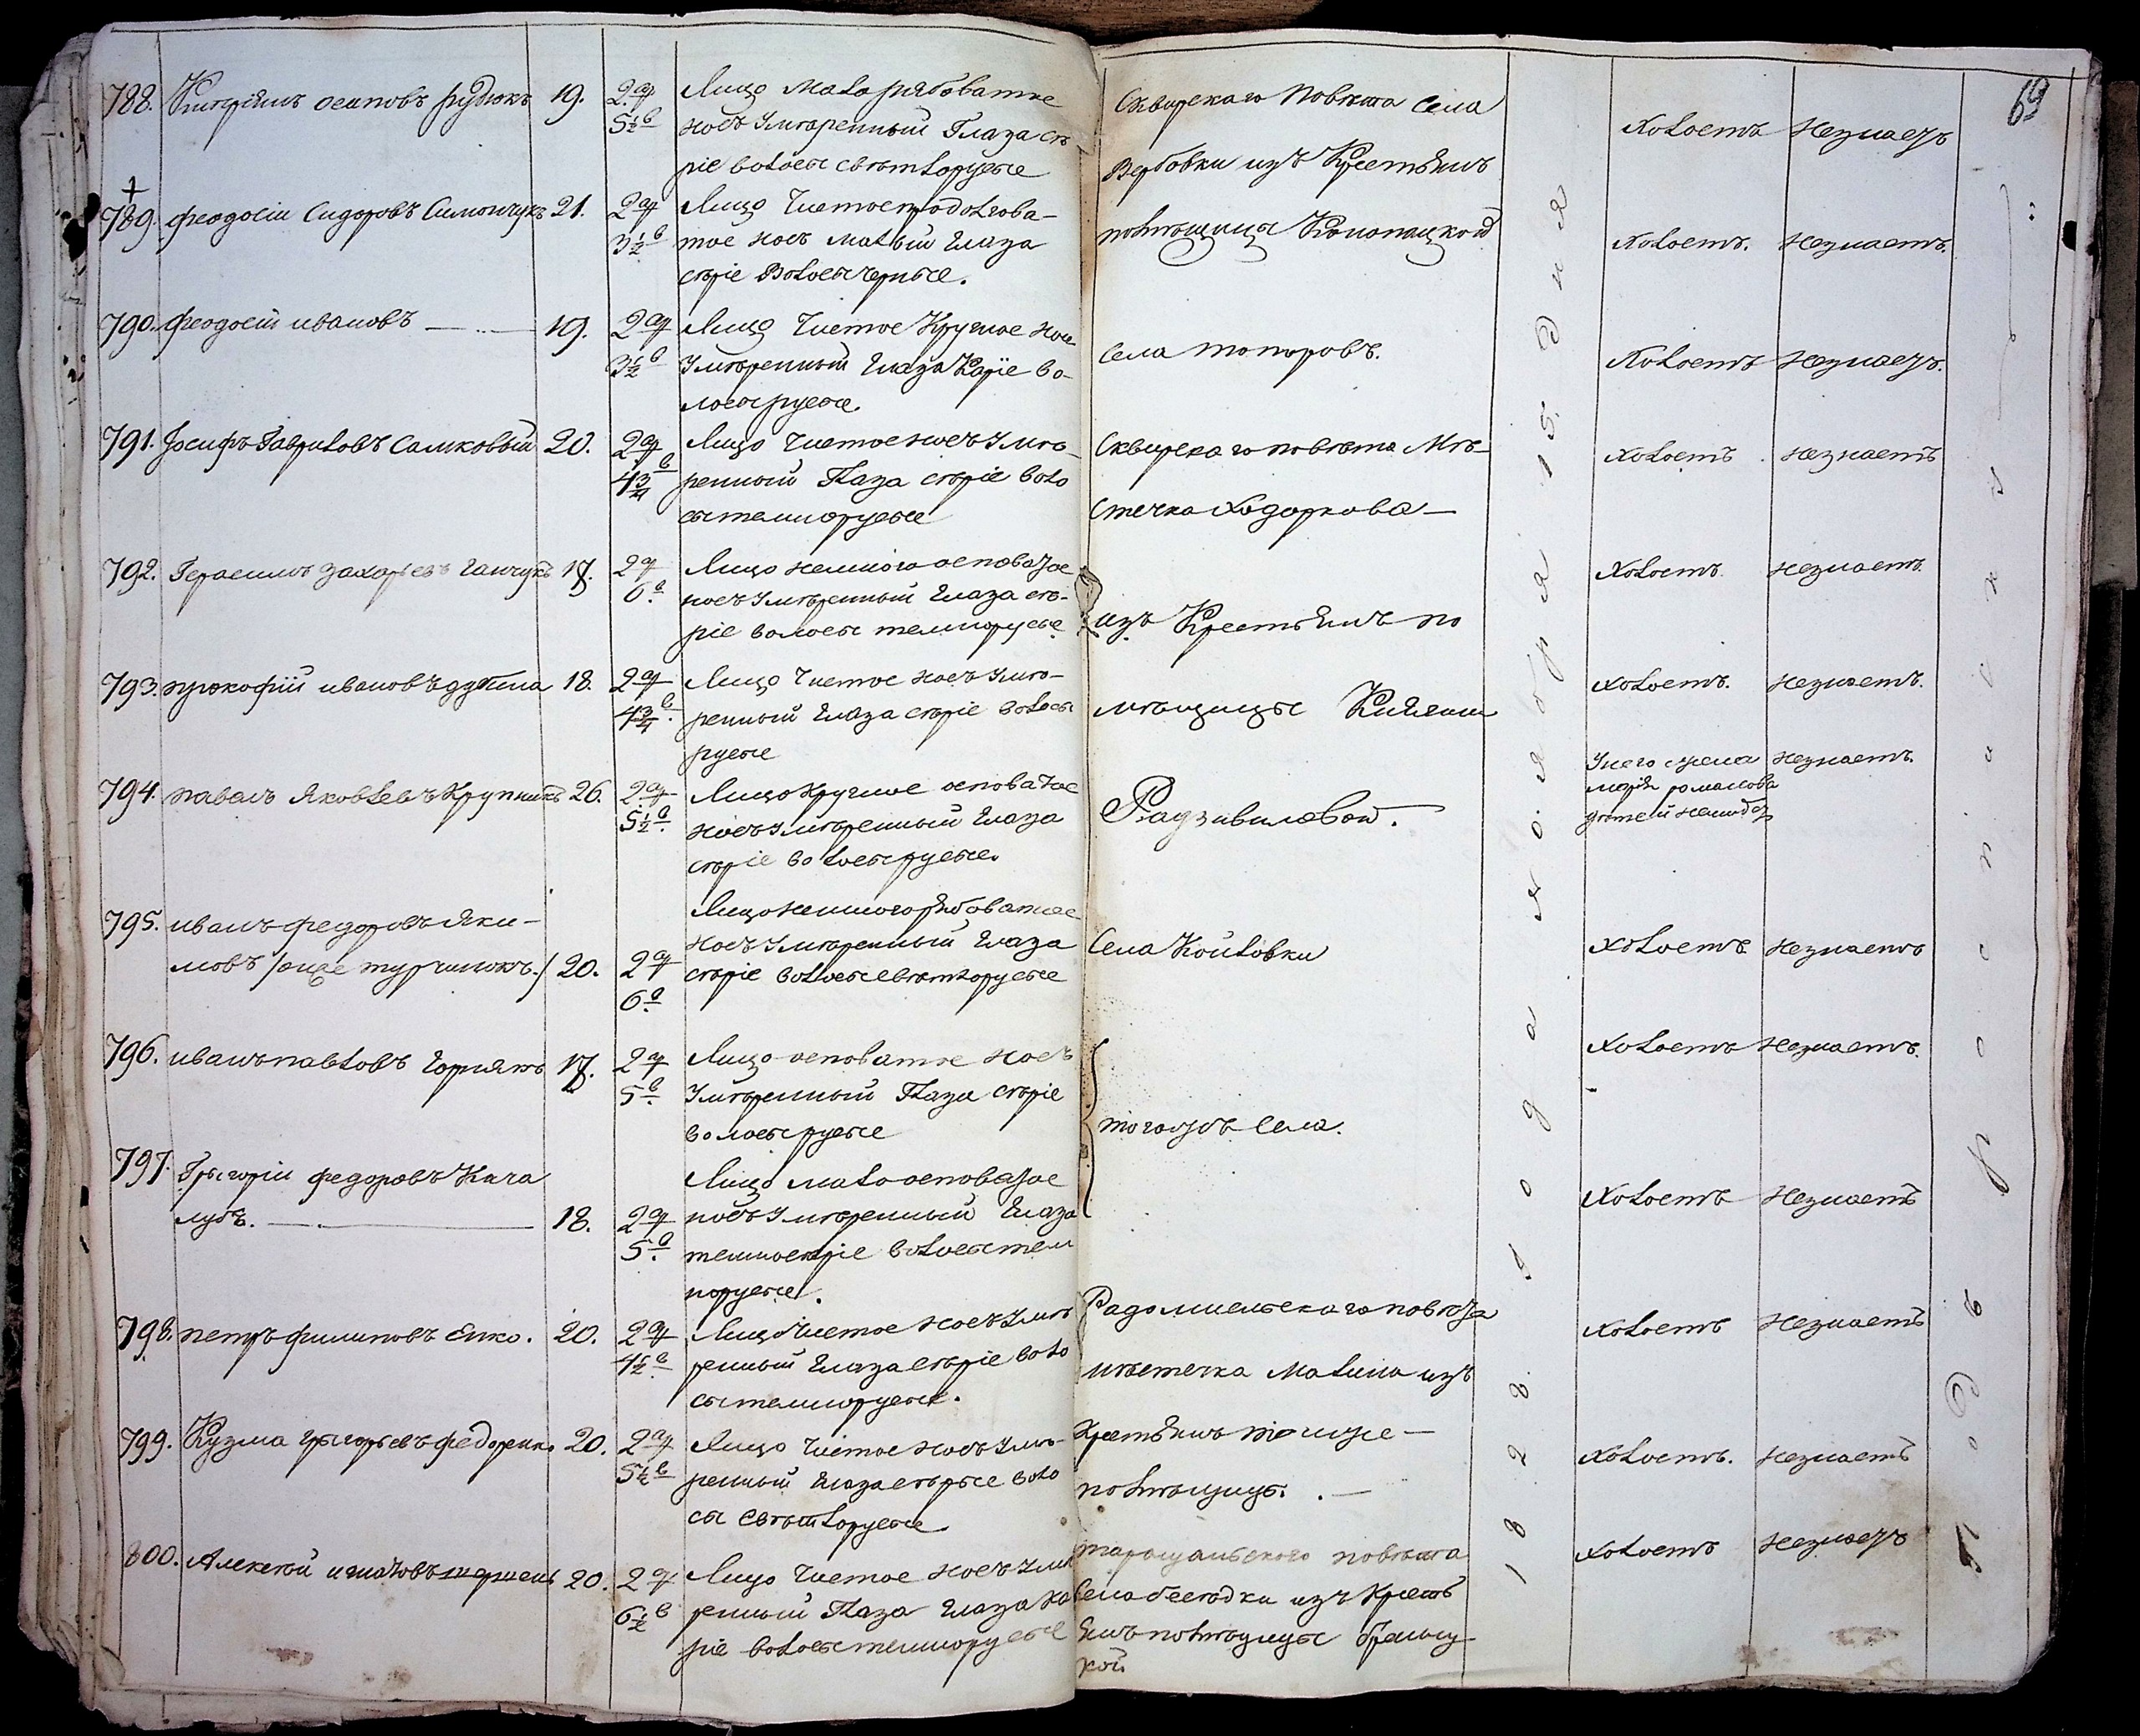 69
788. Киприянъ осиповъ рудюкъ 19. 2 ар 5½ в Лицо мало рябоватое
носъ умѣренный Глаза сѣ
ріе волосы свѣтлорусые
Сквирскаго повѣта села
Вербовки изъ Крестьянъ
Холостъ Незнаетъ
789. феодосіи Сидоровъ Симончукъ 21. 2 ар 3½ в Лицо Чистое продолгова-
тое носъ малый глаза
сѣріе Волосы черные.
помѣщицы
Холостъ. Незнаетъ.
790. феодосіи ивановъ 19. 2 ар 3½ в Лицо Чистое Круглое носъ
умѣренный глаза Каріе во-
лосы русые.
села топоровъ.
Холостъ Незнаетъ.
791. Іосифъ Гавриловъ Самковый 20. 2 ар 4¾ в Лицо Чистое носъ умѣ-
ренный Глаза сѣріе воло
сы темнорусые
Сквирскаго повѣта Мѣ-
стечка Ходоркова
Холостъ Незнаетъ
792. Герасимъ Захарьевъ Ганчукъ 17. 2 ар 6. в Лицо немного осповатое
носъ умѣренный Глаза сѣ-
ріе волосы темнорусые
изъ Крестьянъ по
Холостъ. Незнаетъ.
793. прокофій ивановъ 18. 2 ар 4¾ в. Лицо Чистое носъ умѣ-
ренный глаза сѣріе волосы
русые
мѣщицы Княгини
Холостъ. Незнаетъ.
794. павелъ Яковлевъ Крупникъ 26. 2 ар 5½ в. Лицо Круглое осповатое
носъ умѣренный глаза
сѣріе волосы русые.
Радзивиловой.
У него жена
марія романова
дѣтей
Незнаетъ.
795. иванъ федоровъ Яки-
мовъ /онже турчинюкъ./ 20. 2 ар 6. в Лицо немного рябоватое
носъ умѣренный глаза
сѣріе волосы свѣтлорусые
Села Койловки
Холостъ Незнаетъ
796. иванъ павловъ Горнякъ 17. 2 ар 5. в Лицо осповатое носъ
умѣренный Глаза сѣріе
волосы русые
тогожъ села.
Холостъ Незнаетъ.
797. Грыгоріи федоровъ Кача
лубъ. 18. 2 ар 5. в Лицо мало осповатое
носъ умѣренный глаза
темносѣріе волосы тем
норусые.
Холостъ Незнаетъ
798. петръ филиповъ Енко. 20. 2 ар 4½ в Лицо Чистое носъ умѣ
ренный глаза сѣріе воло
сы темнорусые.
Радомисльскаго повѣта
мѣстечка Малина изъ
Холостъ Незнаетъ
799. Кузма грыгорьевъ федоренко 20. 2 ар 5½ в Лицо Чистое носъ умѣ-
ренный глаза сѣрые воло
сы свѣтлорусые
Крестьянъ тоиже
помѣщицы.
Холостъ. Незнаетъ
800. Алексѣй игнатовъ 20. 2 ар 6½ в Лицо Чистое носъ умѣ
ренный Глаза глаза ка
ріе волосы темнорусые
таращанского повѣта
села бесѣдки изъ Кресть
янъ помѣщицы браниц
кой
Холостъ Незнаетъ
1828. года ноября 15. дня